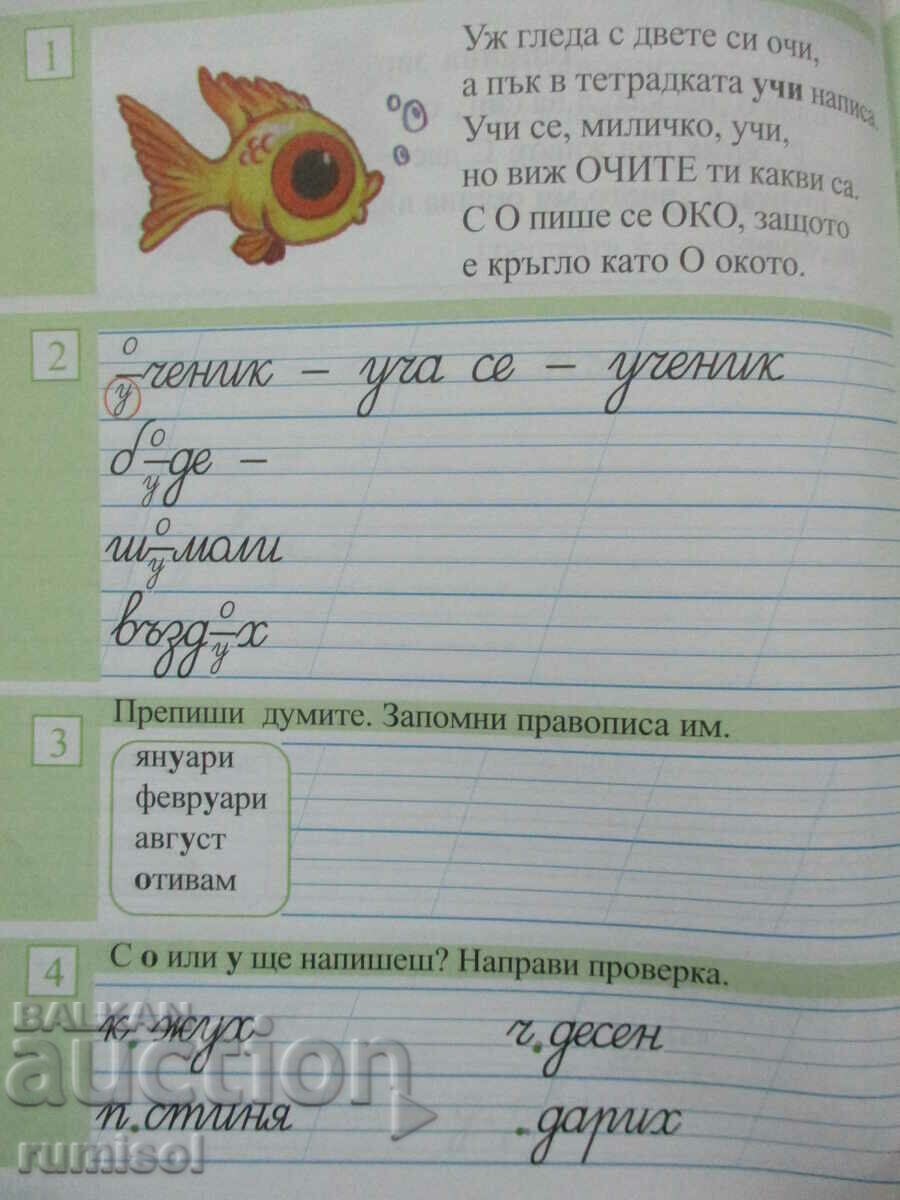 1
Уж гледа с двете си очи,
а пък в тетрадката учи написа.
Учи се, миличко, учи,
но виж ОЧИТЕ ти какви са.
С О пише се ОКО, защото
е кръгло като О окото.
2
о/у ченик – уча се – ученик
б о/у де –
ш о/у моли
възд о/у х
3
Препиши думите. Запомни правописа им.
януари
февруари
август
отивам
4
С о или у ще напишеш? Направи проверка.
к.жух ч.десен
п.стиня .дарих
BALKAN
auction
rumisol